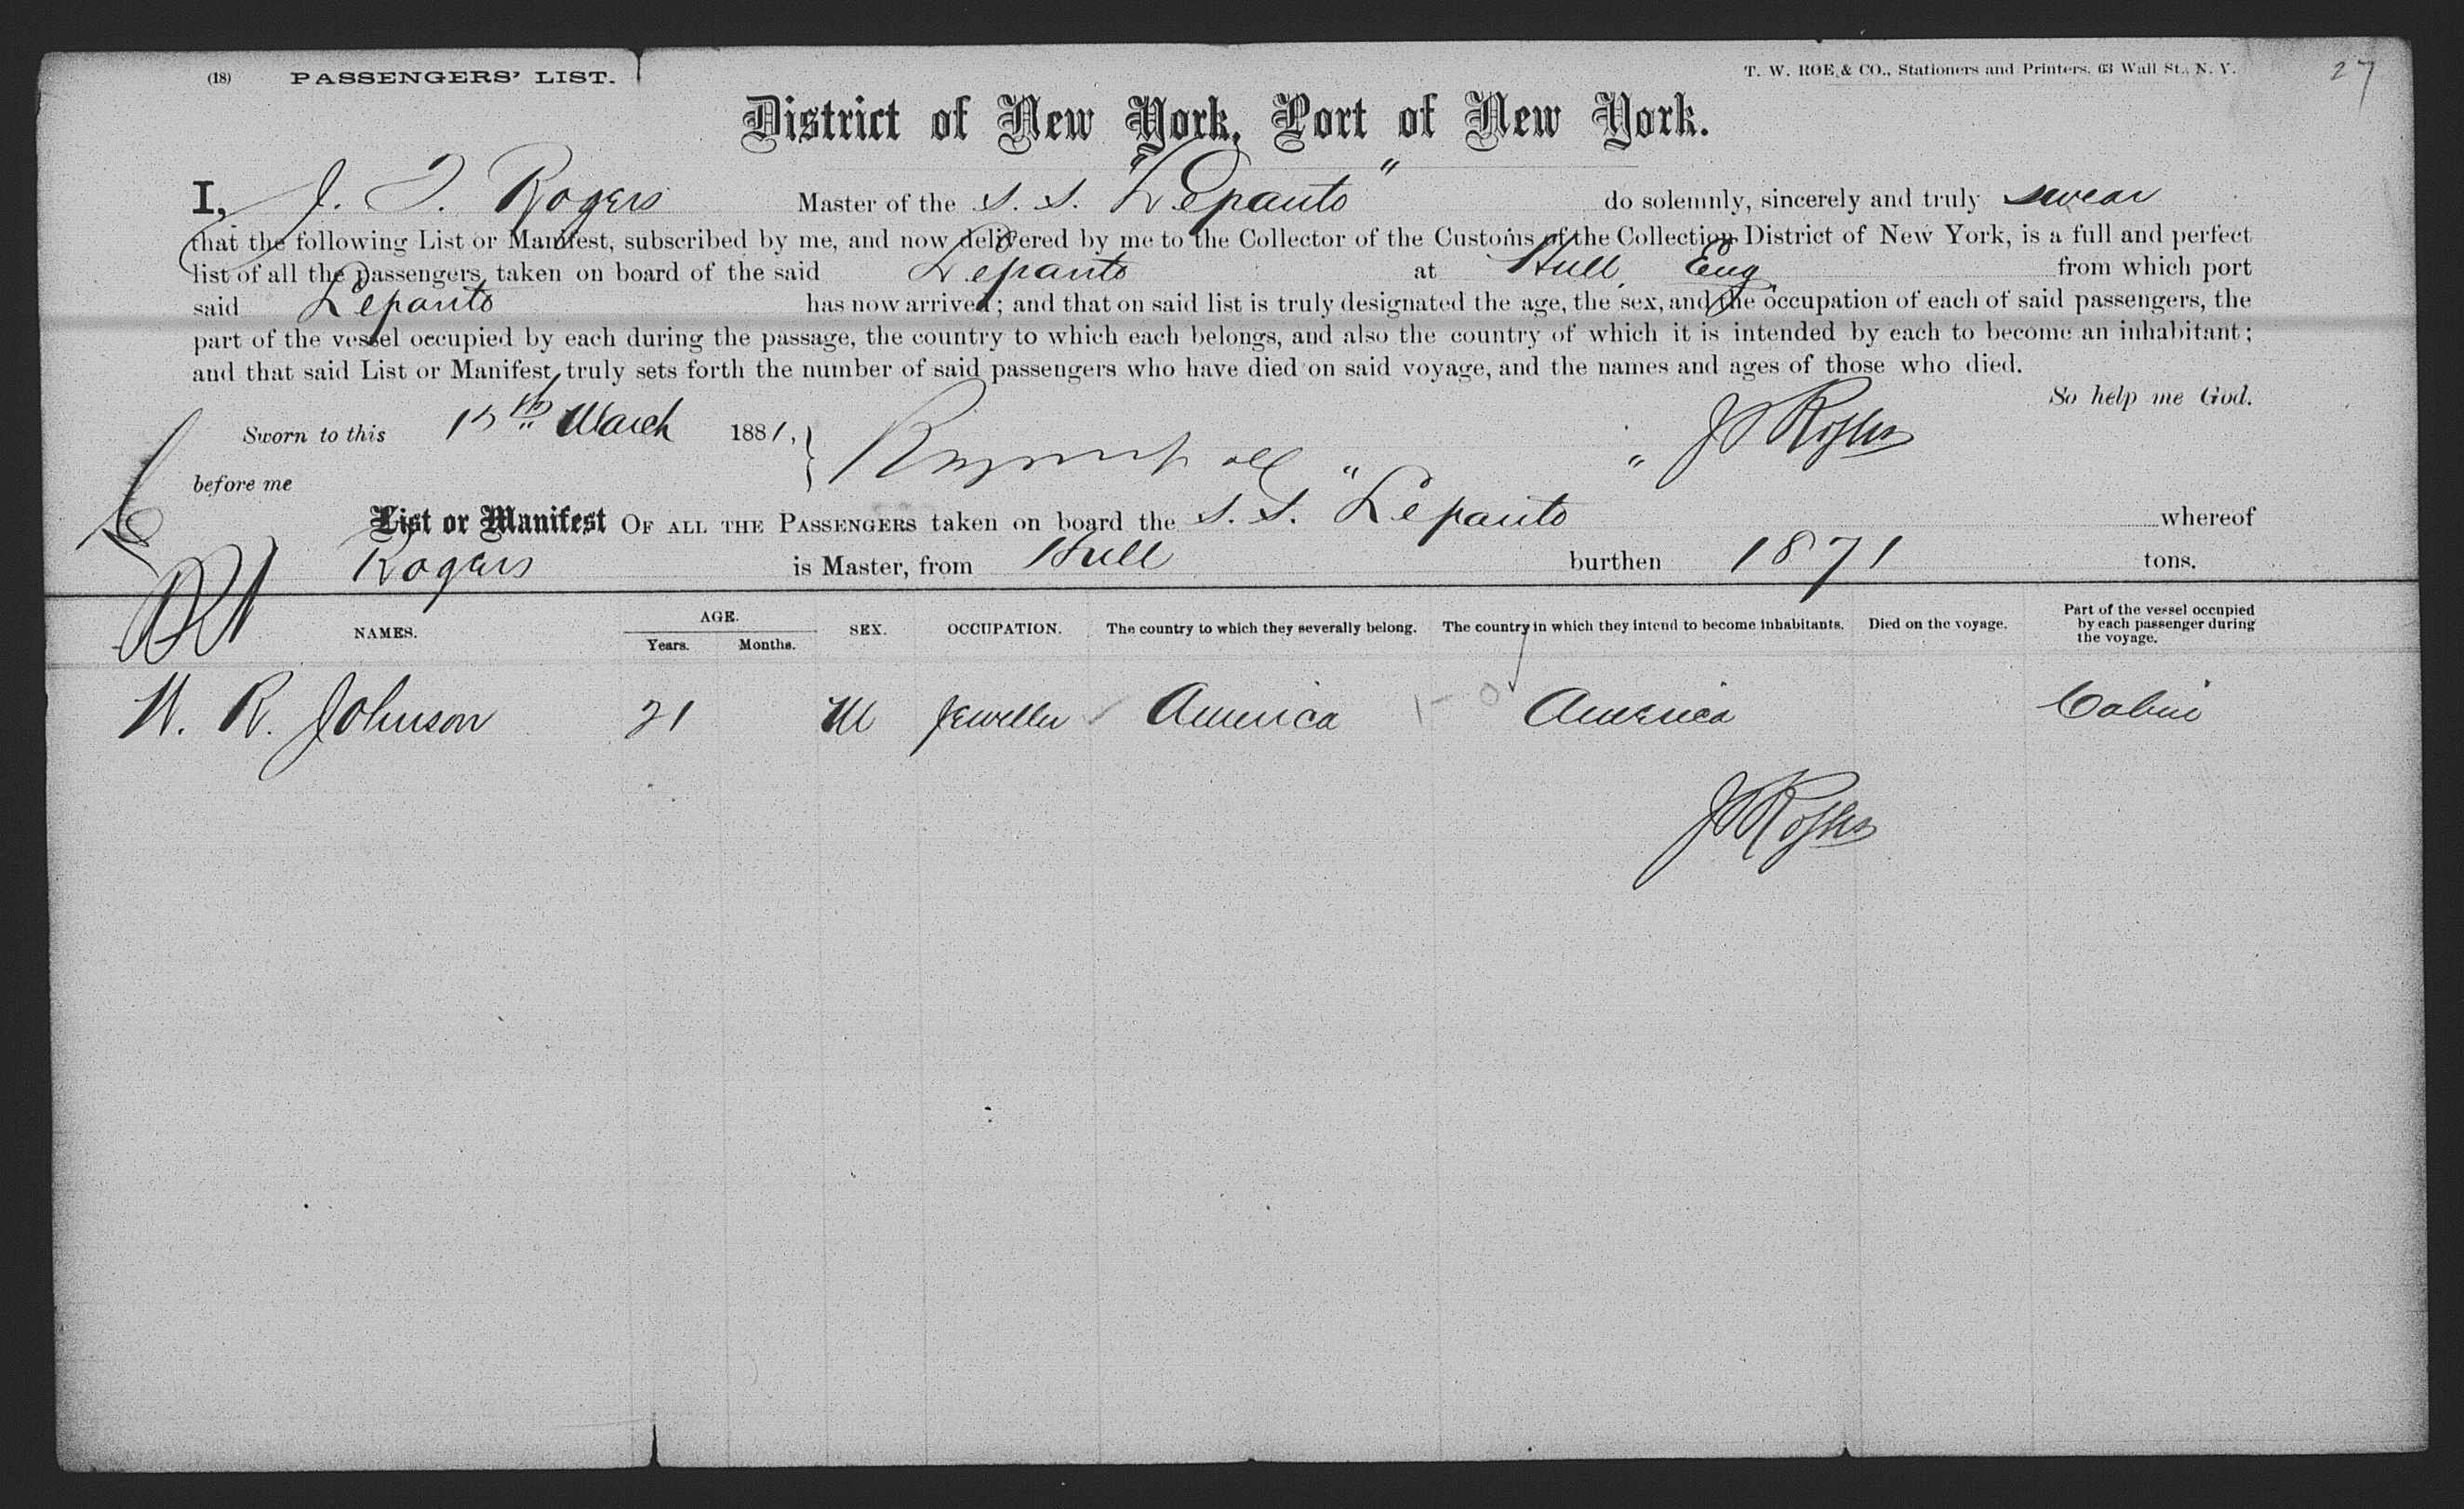 (18) PASSENGERS' LIST. T. W. ROE & CO., Stationers and Printers, 63 Wall St., N. Y. 27
District of New York, Port of New York.
I, J. T. Rogers Master of the S. S. "Lepanto" do solemnly, sincerely and truly swear
that the following List or Manifest, subscribed by me, and now delivered by me to the Collector of the Customs of the Collection District of New York, is a full and perfect
list of all the passengers, taken on board of the said Lepanto at Hull, Eng from which port
said Lepanto has now arrived; and that on said list is truly designated the age, the sex, and the occupation of each of said passengers, the
part of the vessel occupied by each during the passage, the country to which each belongs, and also the country of which it is intended by each to become an inhabitant;
and that said List or Manifest truly sets forth the number of said passengers who have died on said voyage, and the names and ages of those who died.
So help me God.
Sworn to this 15th March 1881, J T Rogers
before me
List or Manifest OF ALL THE PASSENGERS taken on board the S. S. "Lepanto" whereof
Rogers is Master, from Hull burthen 1871 tons.
NAMES. AGE. Years. Months. SEX. OCCUPATION. The country to which they severally belong. The country in which they intend to become inhabitants. Died on the voyage. Part of the vessel occupied by each passenger during the voyage.
W. R. Johnson 21 M Jeweller America 1-0 America Cabin
J T Rogers